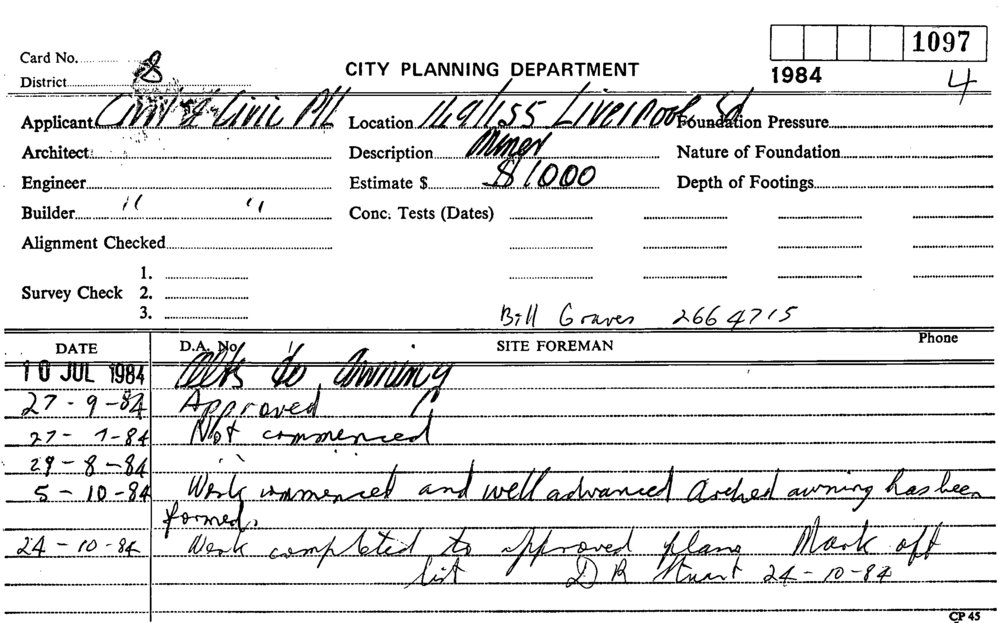 1097
Card No. 8
District
CITY PLANNING DEPARTMENT
1984 4
Applicant Civil & Civic P/L Location 149/155 Liverpool St Foundation Pressure
Architect Description Minor Nature of Foundation
Engineer Estimate $ $1000 Depth of Footings
Builder " " Conc. Tests (Dates)
Alignment Checked
1.
Survey Check 2.
3.
Bill Graves 2664715
DATE D.A. No. SITE FOREMAN Phone
10 JUL 1984 Alts to awning
27-9-84 Approved
27-7-84 Not commenced
29-8-84 " "
5-10-84 Work commenced and well advanced Arched awning has been
formed.
24-10-84 Work completed to approved plans Mark off
list D R Stuart 24-10-84
CP 45